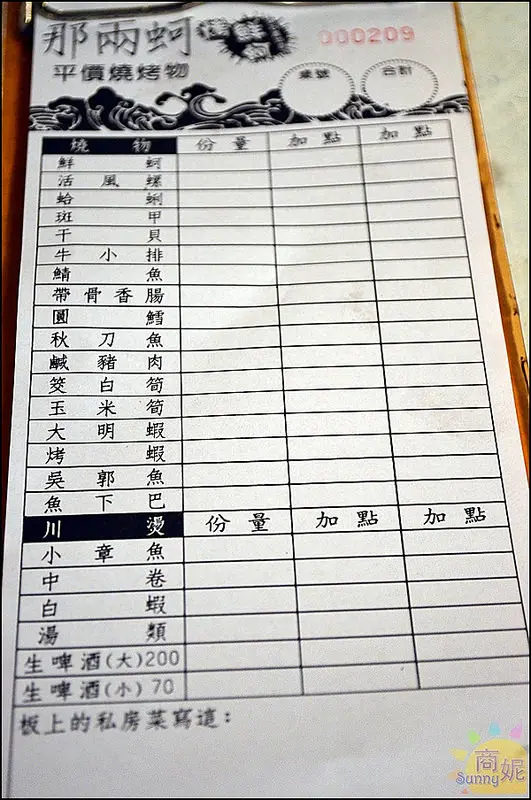 那兩蚵
000209
平價燒烤物
桌號 合計
燒物 份量 加點 加點
鮮蚵
活風螺
蛤蜊
斑甲
干貝
牛小排
鯖魚
帶骨香腸
圓鱈
秋刀魚
鹹豬肉
筊白筍
玉米筍
大明蝦
烤蝦
吳郭魚
魚下巴
川燙 份量 加點 加點
小章魚
中卷
白蝦
湯類
生啤酒(大)200
生啤酒(小) 70
板上的私房菜寫這：
商妮
Sunny